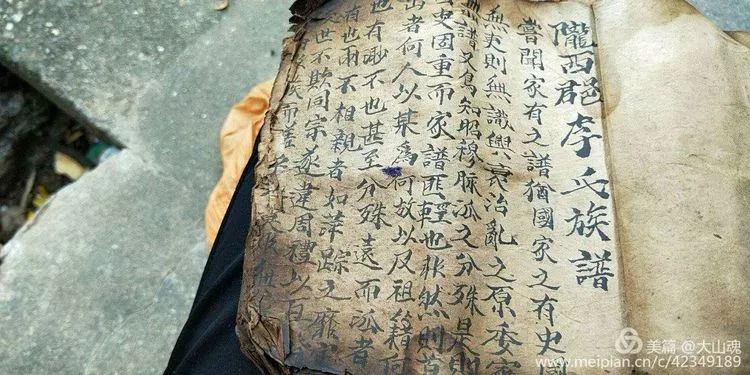 隴西郡李氏族譜
嘗聞家有之譜猶國家之有史
無史則無識興衰治亂之原委家
無譜又烏知昭穆脉派之分殊是則
史固重而家譜匪輕也非然則首
出者何人以某為何故以及祖籍何
也有渺不也甚至分殊遠而派者
有也兩不相親者如萍踪之靡
世不欺同宗遂違周禮以百
美篇 @大山魂
www.meipian.cn/c/42349189